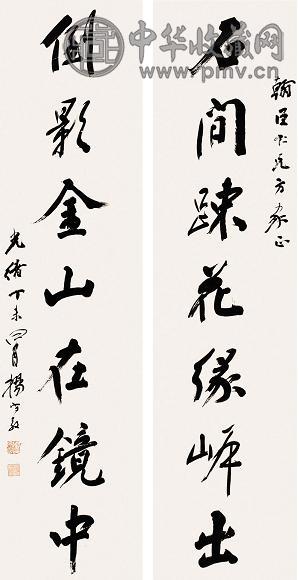 中华收藏网
www.pmv.cn
翰臣仁兄方家正
石間疎花緣岸出
倒影金山在鏡中
光緒丁未四月楊守敬